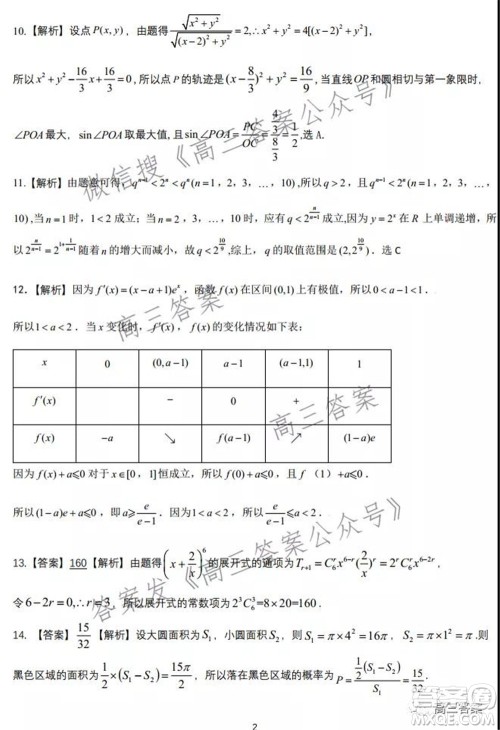 10.【解析】设点 P(x, y)，由题得 √(x²+y²)/√((x-2)²+y²) = 2,∴x²+y²=4[(x-2)²+y²],
所以 x²+y²-16/3 x+16/3=0,所以点 P 的轨迹是 (x-8/3)²+y²=16/9,当直线OP和圆相切与第一象限时,
∠POA最大, sin∠POA 取最大值,且 sin∠POA=PC/OC=(4/3)/(8/3)=1/2,选 A.
11.【解析】由题意可得, qⁿ⁻¹<2ⁿ<qⁿ(n=1, 2, 3, …, 10),所以 q>2, 且 qⁿ⁻¹<2ⁿ(n=1, 2, 3, …,
10),当 n=1时, 1<2 成立; 当 n=2, 3, …, 10时, 应有 q<2^(n/(n-1)) 成立,因为 y=2ˣ 在 R 上单调递增,所
以 2^(n/(n-1))=2^(1+1/(n-1)) 随着 n 的增大而减小, 故 q<2^(10/9),综上, q 的取值范围是 (2,2^(10/9)). 选 C
12.【解析】因为 f′(x)=(x-a+1)eˣ, 函数 f(x) 在区间(0,1) 上有极值, 所以 0<a-1<1.
所以1<a<2. 当 x 变化时, f′(x), f(x) 的变化情况如下表:
x 0 (0,a-1) a-1 (a-1,1) 1
f′(x) - 0 +
f(x) -a ↘ f(a-1) ↗ (1-a)e
因为 f(x)+a⩽0 对于 x∈[0, 1]恒成立, 所以 f(0)+a⩽0, 且 f (1)+a⩽0.
所以 (1-a)e+a⩽0, 即 a⩾e/(e-1). 因为1<a<2, 所以 e/(e-1)⩽a<2.
13.【答案】160【解析】由题得(x+2/x)⁶的展开式的通项为 Tᵣ₊₁=C₆ʳx⁶⁻ʳ(2/x)ʳ=2ʳC₆ʳx⁶⁻²ʳ,
令 6-2r=0,∴r=3, 所以展开式的常数项为 2³C₆³=8×20=160.
14.【答案】15/32【解析】设大圆面积为 S₁, 小圆面积 S₂, 则 S₁=π×4²=16π, S₂=π×1²=π.则
黑色区域的面积为 1/2×(S₁-S₂)=15π/2, 所以落在黑色区域的概率为 P=(1/2(S₁-S₂))/S₁=15/32.
2
微信搜《高三答案公众号》
高三答案
高三答案
答案发《高三答案公众号》
高三答案